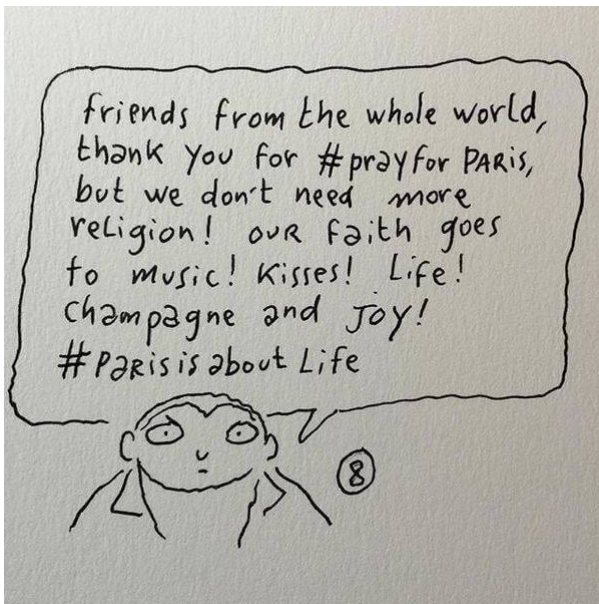 friends from the whole world,
thank you for #prayforPARIS,
but we don't need more
religion! OUR faith goes
to music! Kisses! Life!
Champagne and JOY!
#Parisisaboutlife
8